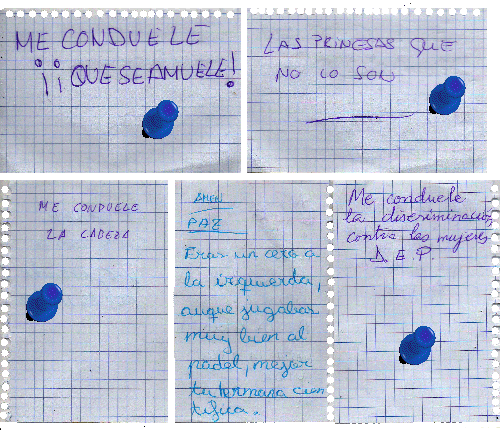 ME CONDUELE
¡¡QUESEAMUELE!
LAS PRINCESAS QUE
NO LO SON
ME CONDUELE
LA CADEZA
AMEN
PAZ
Eras un cero a
la izquierda,
auque jugabas
muy bien al
padel, mejor
tu termana cien
tífica.
Me conduele
la discriminación
contra las mujeres
D.E.P.